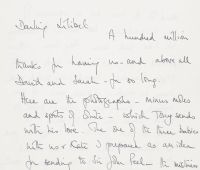 Darling Lilibet
A hundred million
thanks for having us - and above all
David and Sarah - for so long.
Here are the photographs - minus
and of - which Tony sends
with his love. The one of the three babies
with no I propose as an idea
for sending to Sir John Peel - the